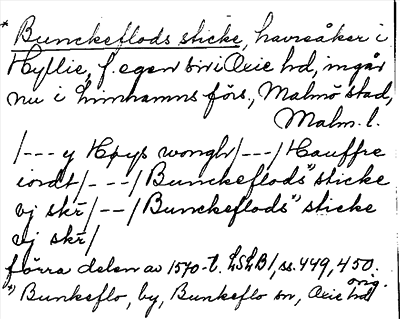 * Bunckeflods sticke, havreåker i
Hyllie, f. egen by i Oxie hd, ingår
nu i Limhamns förs., Malmö stad,
Malm. l.
/--- y Høys wongh/---/Hauffre
iordt/---/Bunckeflods*) sticke
vj skr̄/--/Bunckeflods*) sticke
vj skr̄/
förra delen av 1570-t. LSLB1, ss. 449, 450.
orig.
*) Bunkeflo, by, Bunkeflo sn, Oxie hd